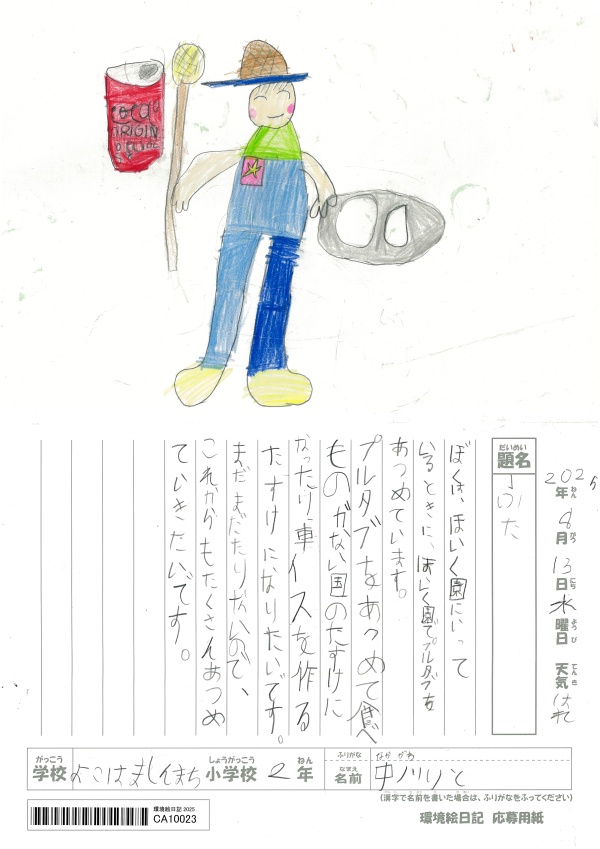 coca
ORIGIN
2025年8月13日水曜日 天気はれ
ねん がつ にち ようび てんき
だいめい
題名
ふた
ぼくは、ほいく園にいって
いるときに、ほいく園でプルタブを
あつめています。
プルタブをあつめて食べ
ものがない国のたすけに
なったり、車イスを作る
たすけになりたいです。
まだまだたりないので、
これからもたくさんあつめ
ていきたいです。
がっこう しょうがっこう ねん
学校 よこはましんまち 小学校 2年
ふりがな なかがわ
なまえ
名前 中川りと
(漢字で名前を書いた場合は、ふりがなをふってください)
環境絵日記 2025
CA10023
環境絵日記 応募用紙